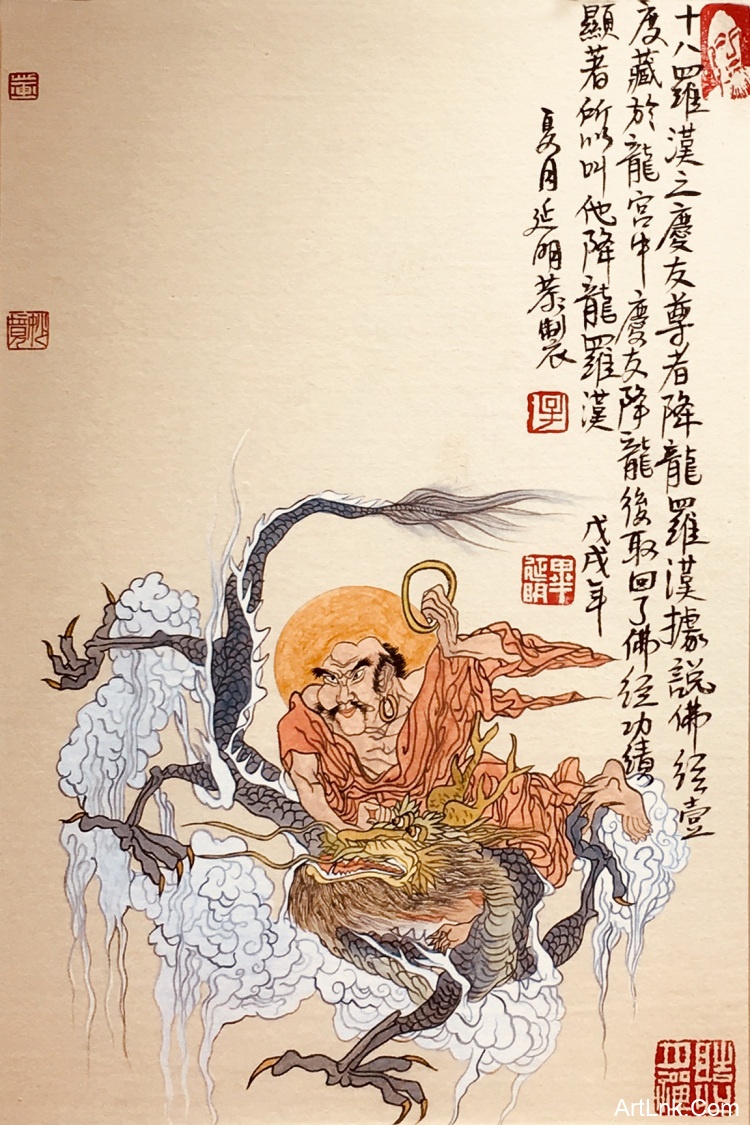 十八羅漢之慶友尊者降龍羅漢據說佛經壹
度藏於龍宮中慶友降龍後取回了佛經功績
顯著所以叫他降龍羅漢
戊戌年
夏月延明恭製
ArtLnk.Com